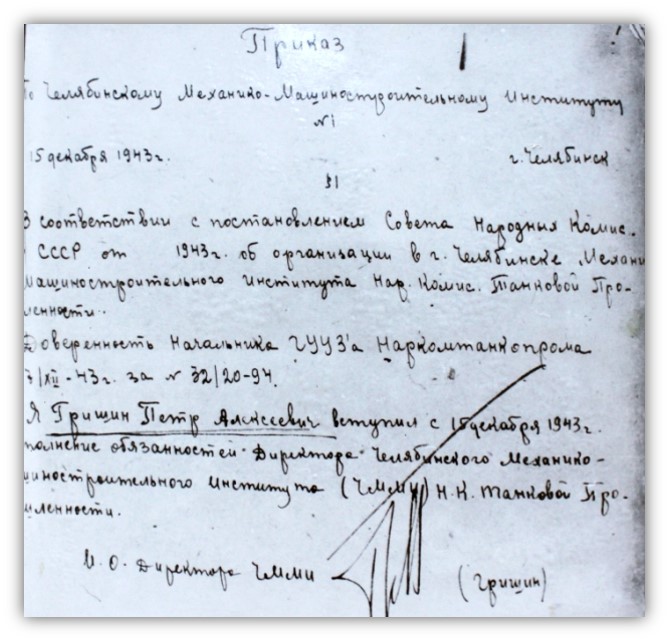 Приказ
По Челябинскому Механико-Машиностроительному Институту
№1
15 декабря 1943 г. г. Челябинск
§1
В соответствии с постановлением Совета Народных Комис.
СССР от 1943 г. об организации в г. Челябинске Механи
Машиностроительного Института Нар. Комис. Танковой Про-
ленности.
Доверенность Начальника ГУУЗ'а Наркомтанкопрома
/XII-43 г. за № 32/20-94.
Я Гришин Петр Алексеевич вступил с 15 декабря 1943 г.
полнение обязанностей Директора Челябинского Механико-
шиностроительного Института (ЧММИ) Н.К. Танковой Про-
мленности.
И. О. Директора ЧММИ (Гришин)